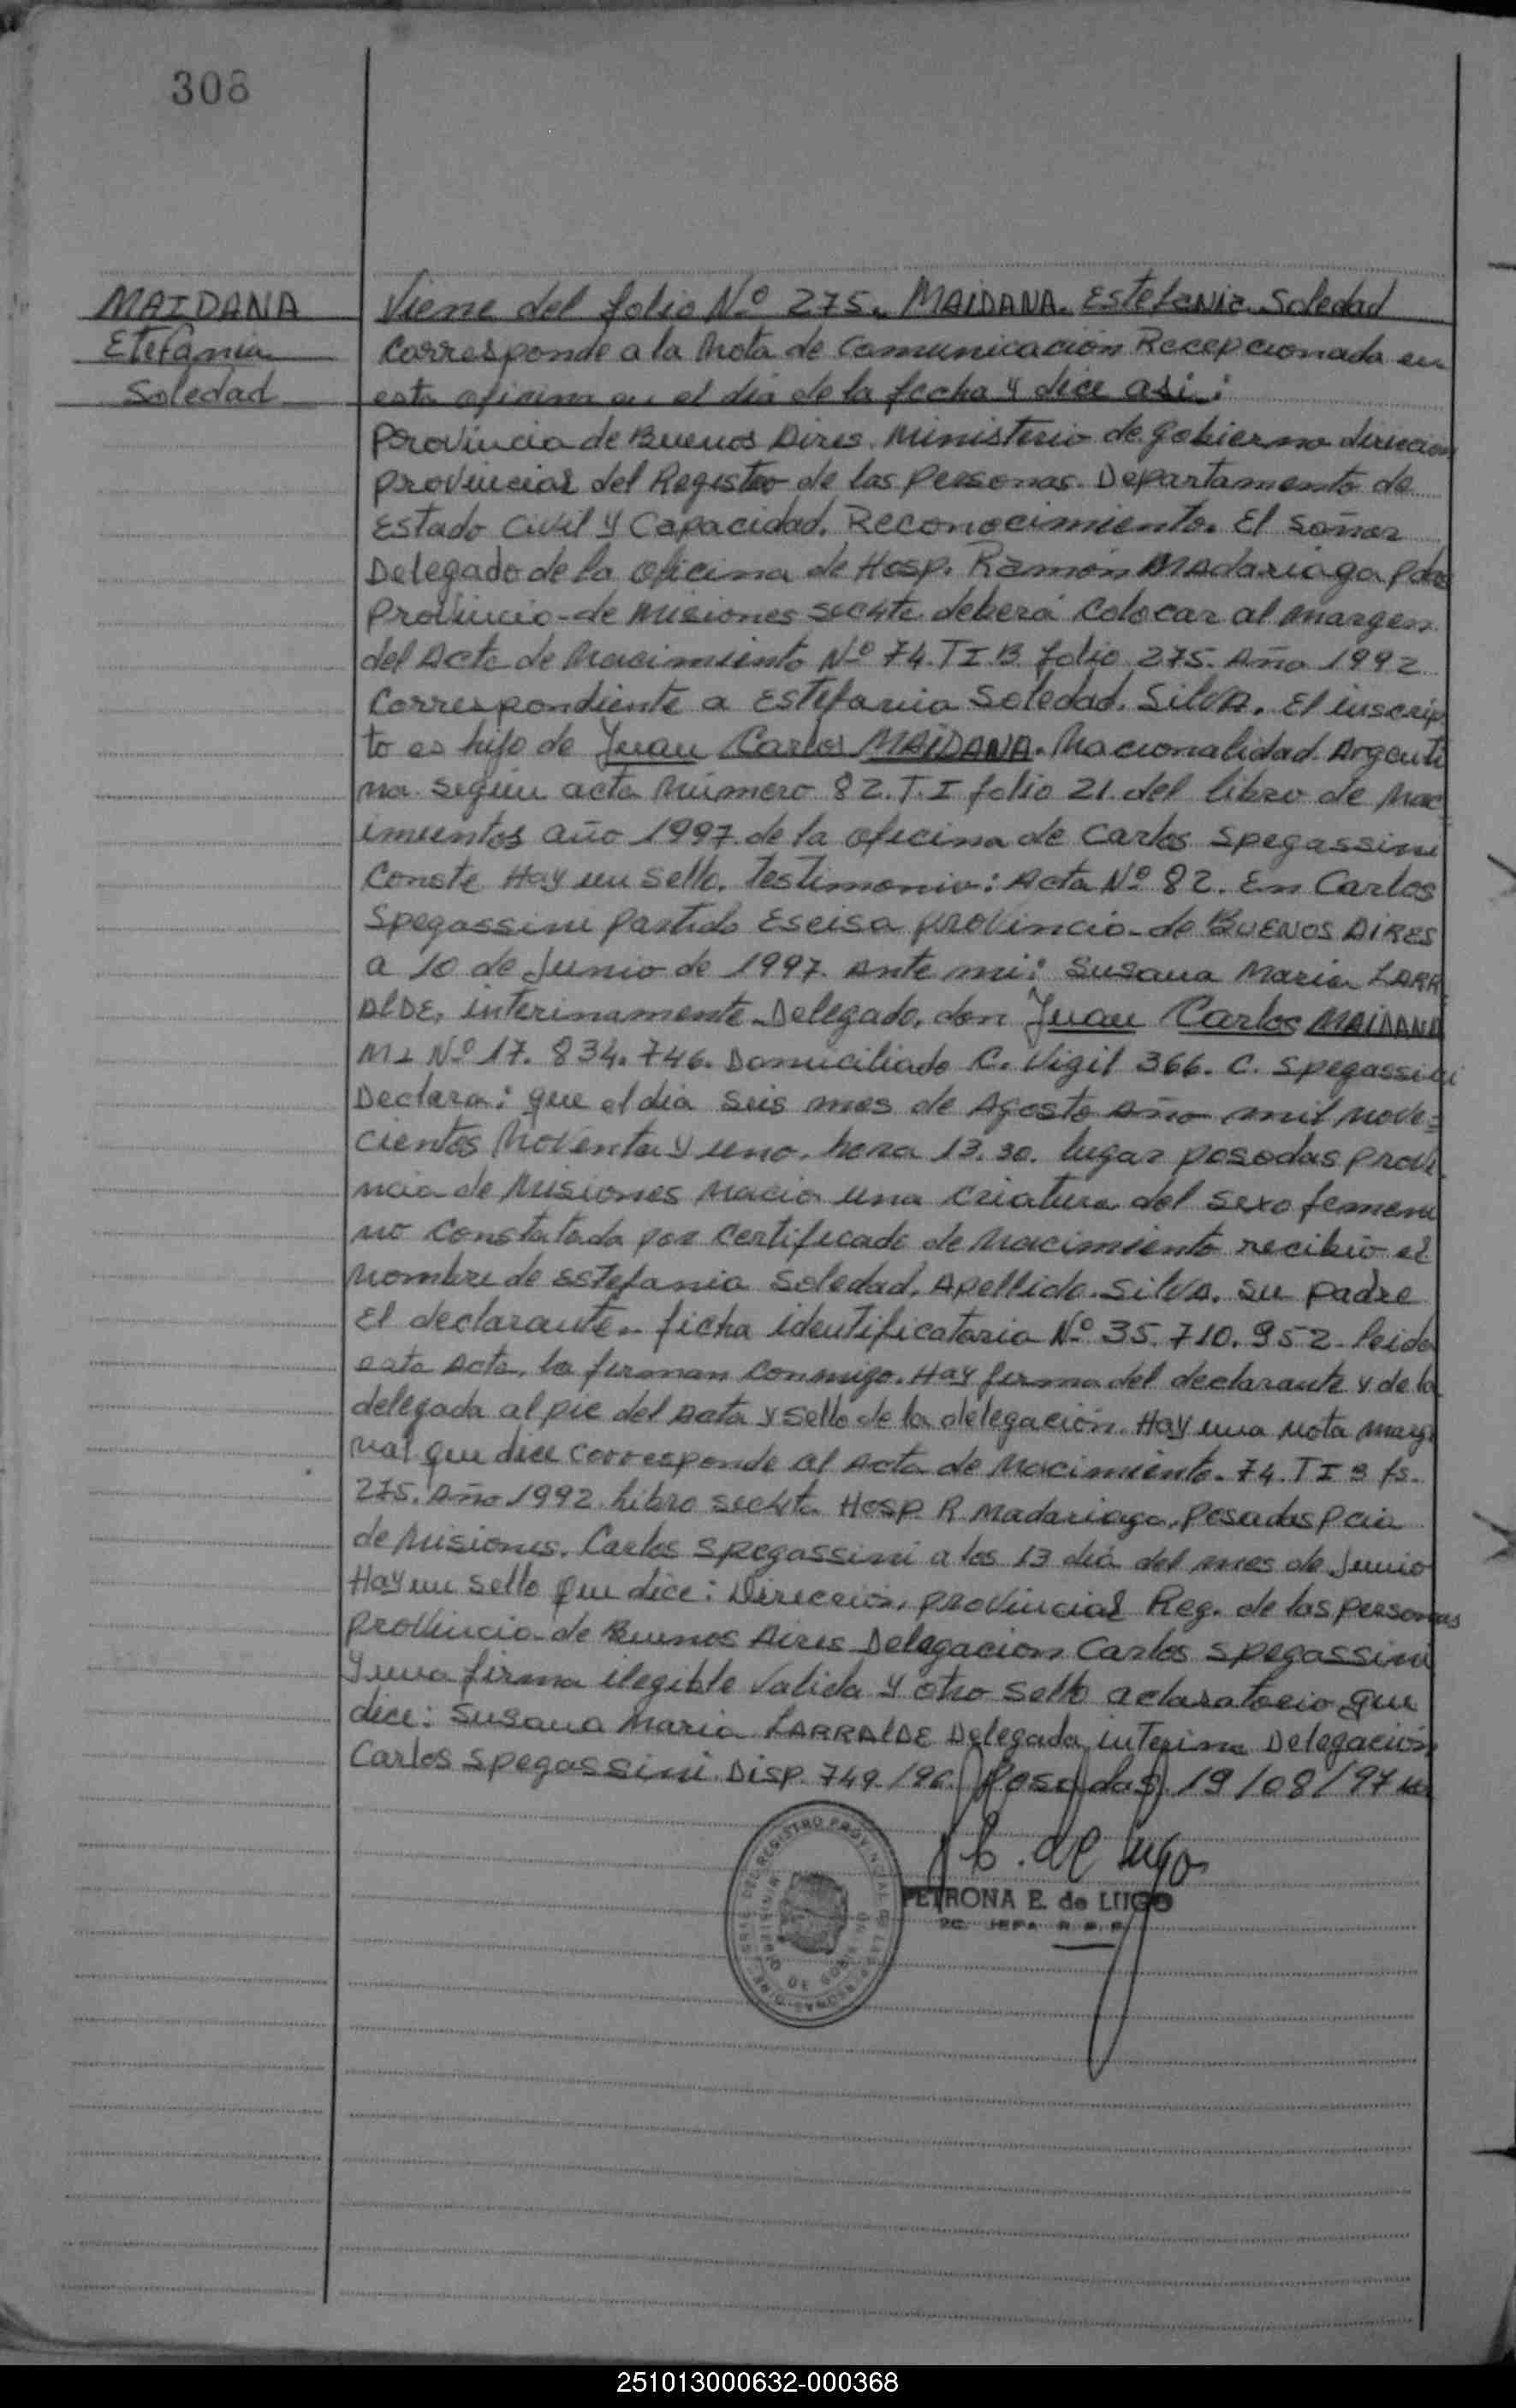 308
MAIDANA
Etefania
Soledad
Viene del folio Nº 275. MAIDANA. Estefania. Soledad
Corresponde a la Nota de Comunicación Recepcionada en
esta oficina en el día de la fecha y dice asi:
Provincia de Buenos Aires. Ministerio de Gobierno dirección
provincial del Registro de las Personas. Departamento de
Estado Civil y Capacidad. Reconocimiento. El Señor
Delegado de la oficina de Hosp. Ramón Madariaga Pdas
Provincia de Misiones Sec4ta. deberá Colocar al margen
del Acta de Nacimiento Nº 74. T I. B folio 275. Año 1992
Correspondiente a Estefania Soledad. SilVA. El inscrip
to es hijo de Juan Carlos MAIDANA. Nacionalidad Argenti
na. según acta Número 82. T. I folio 21. del libro de Nac
imientos año 1997. de la oficina de Carlos Spegassini
Conste Hay un Sello. Testimonio: Acta Nº 82. En Carlos
Spegassini Partido Eseisa provincia de BUENOS AIRES
a 10 de Junio de 1997. Ante mi: Susana Maria LARR
AlDE, interinamente Delegado, don Juan Carlos MAIDANA
MI Nº 17. 834. 746. Domiciliado C. Vigil 366. C. Spegassini
Declara: que el día Seis mes de Agosto Año mil nove=
cientos Noventa y uno. hora 13.30. lugar posadas Provi
ncia de Misiones Nacio una Criatura del sexo femeni
no Constatada por Certificado de Nacimiento recibió el
Nombre de Estefania Soledad, Apellido. SilVA. Su padre
El declarante. ficha identificatoria Nº 35. 710. 952. leida
esta Acta, la firman Conmigo. Hay firma del declarante y de la
delegada al pie del Acta y Sello de la delegación. Hay una Nota margi
nal que dice corresponde al Acta de Nacimiento. 74. T I B fs.
275. Año 1992. libro sec4ta Hosp. R. Madariaga, Posadas Pcia
de Misiones. Carlos Spegassini a los 13 día del mes de Junio
Hay un Sello que dice: Dirección, provincial Reg. de las personas
Provincia de Buenos Aires Delegacion Carlos Spegassini
Y una firma ilegible Valida y otro Sello aclaratorio que
dice: Susana Maria LARRAlDE Delegada, interina Delegación
Carlos Spegassini. Disp. 749./96. Posadas 19/08/97
E. de Lugo
PETRONA E. de LUGO
JEFA R. P. P.
251013000632-000368